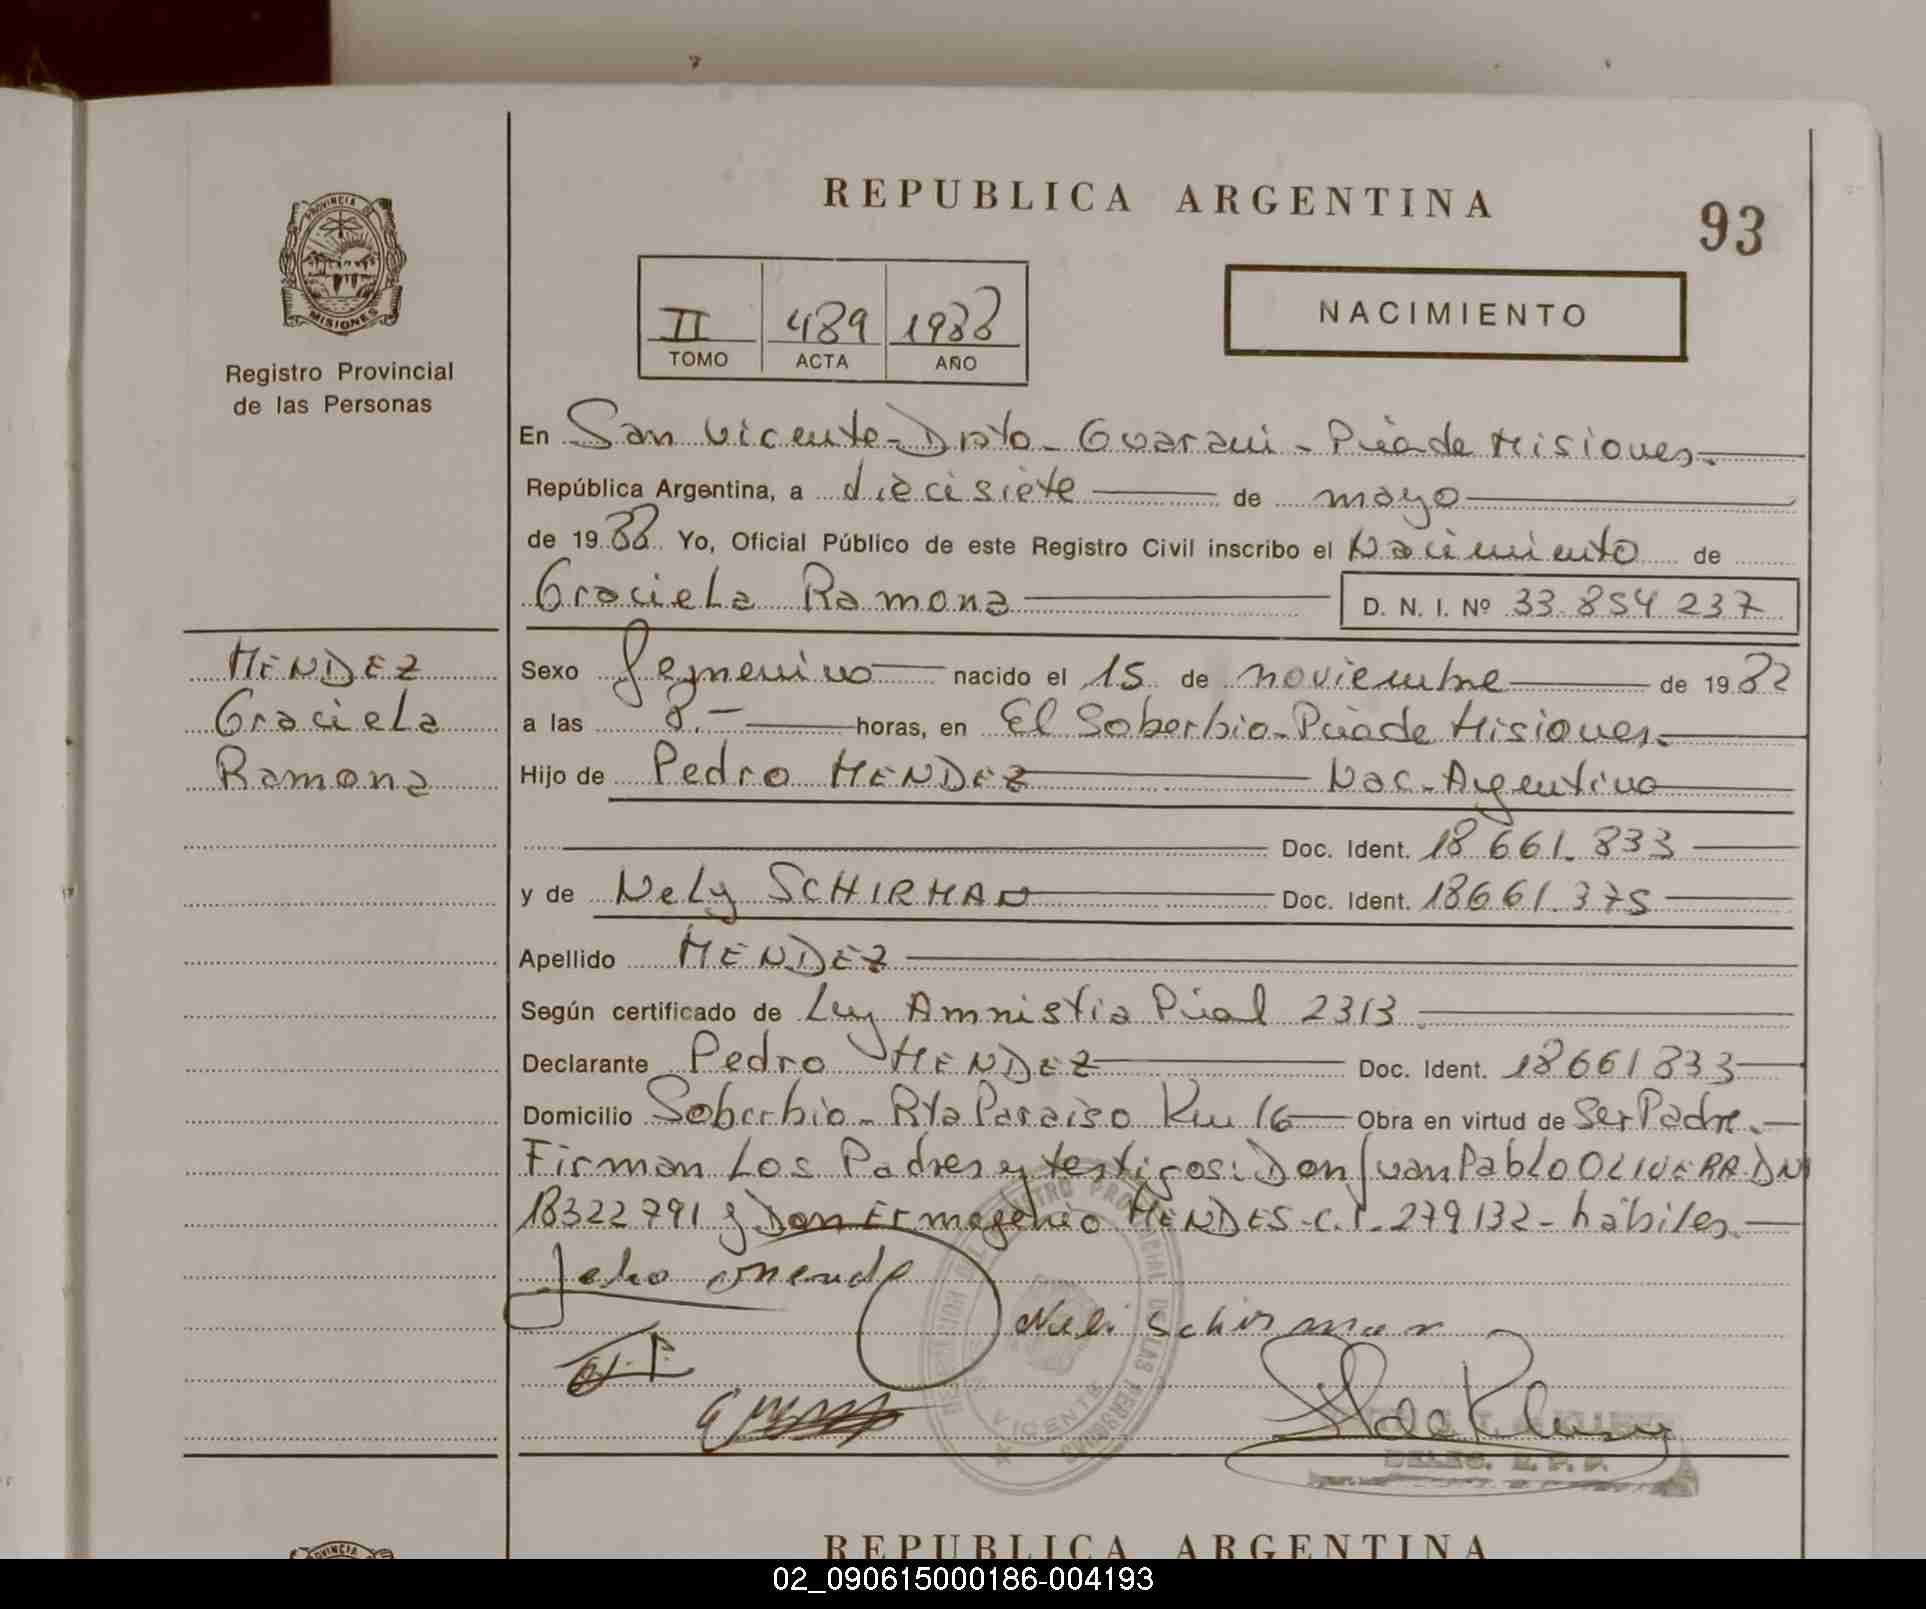 REPUBLICA ARGENTINA
93
PROVINCIA DE
MISIONES
Registro Provincial
de las Personas
II 489 1988
TOMO ACTA AÑO
NACIMIENTO
En San Vicente - Dpto - Guarani - Pcia de Misiones.
República Argentina, a diecisiete de mayo
de 1988 Yo, Oficial Público de este Registro Civil inscribo el Nacimiento de
Graciela Ramona D. N. I. Nº 33.854 237
MENDEZ
Graciela
Ramona
Sexo femenino nacido el 15 de noviembre de 1982
a las 8.- horas, en El Soberbio - Pcia de Misiones.
Hijo de Pedro MENDEZ Nac. Argentina
Doc. Ident. 18 661. 833
y de Nely SCHIRMAN Doc. Ident. 18661.375
Apellido MENDEZ
Según certificado de Ley Amnistia Pcial 2313
Declarante Pedro MENDEZ Doc. Ident. 18661833
Domicilio Soberbio - Rta Paraiso Km 16 Obra en virtud de Ser Padre.
Firman Los Padres y testigos: Don Juan Pablo OLIVERA. DNI
18322791 y Don Ermogenio MENDES - C.I. 279132 - hábiles.
Neli Schirman
VICENTE
DELEG. R. P. P.
REPUBLICA ARGENTINA
PROVINCIA
02_090615000186-004193